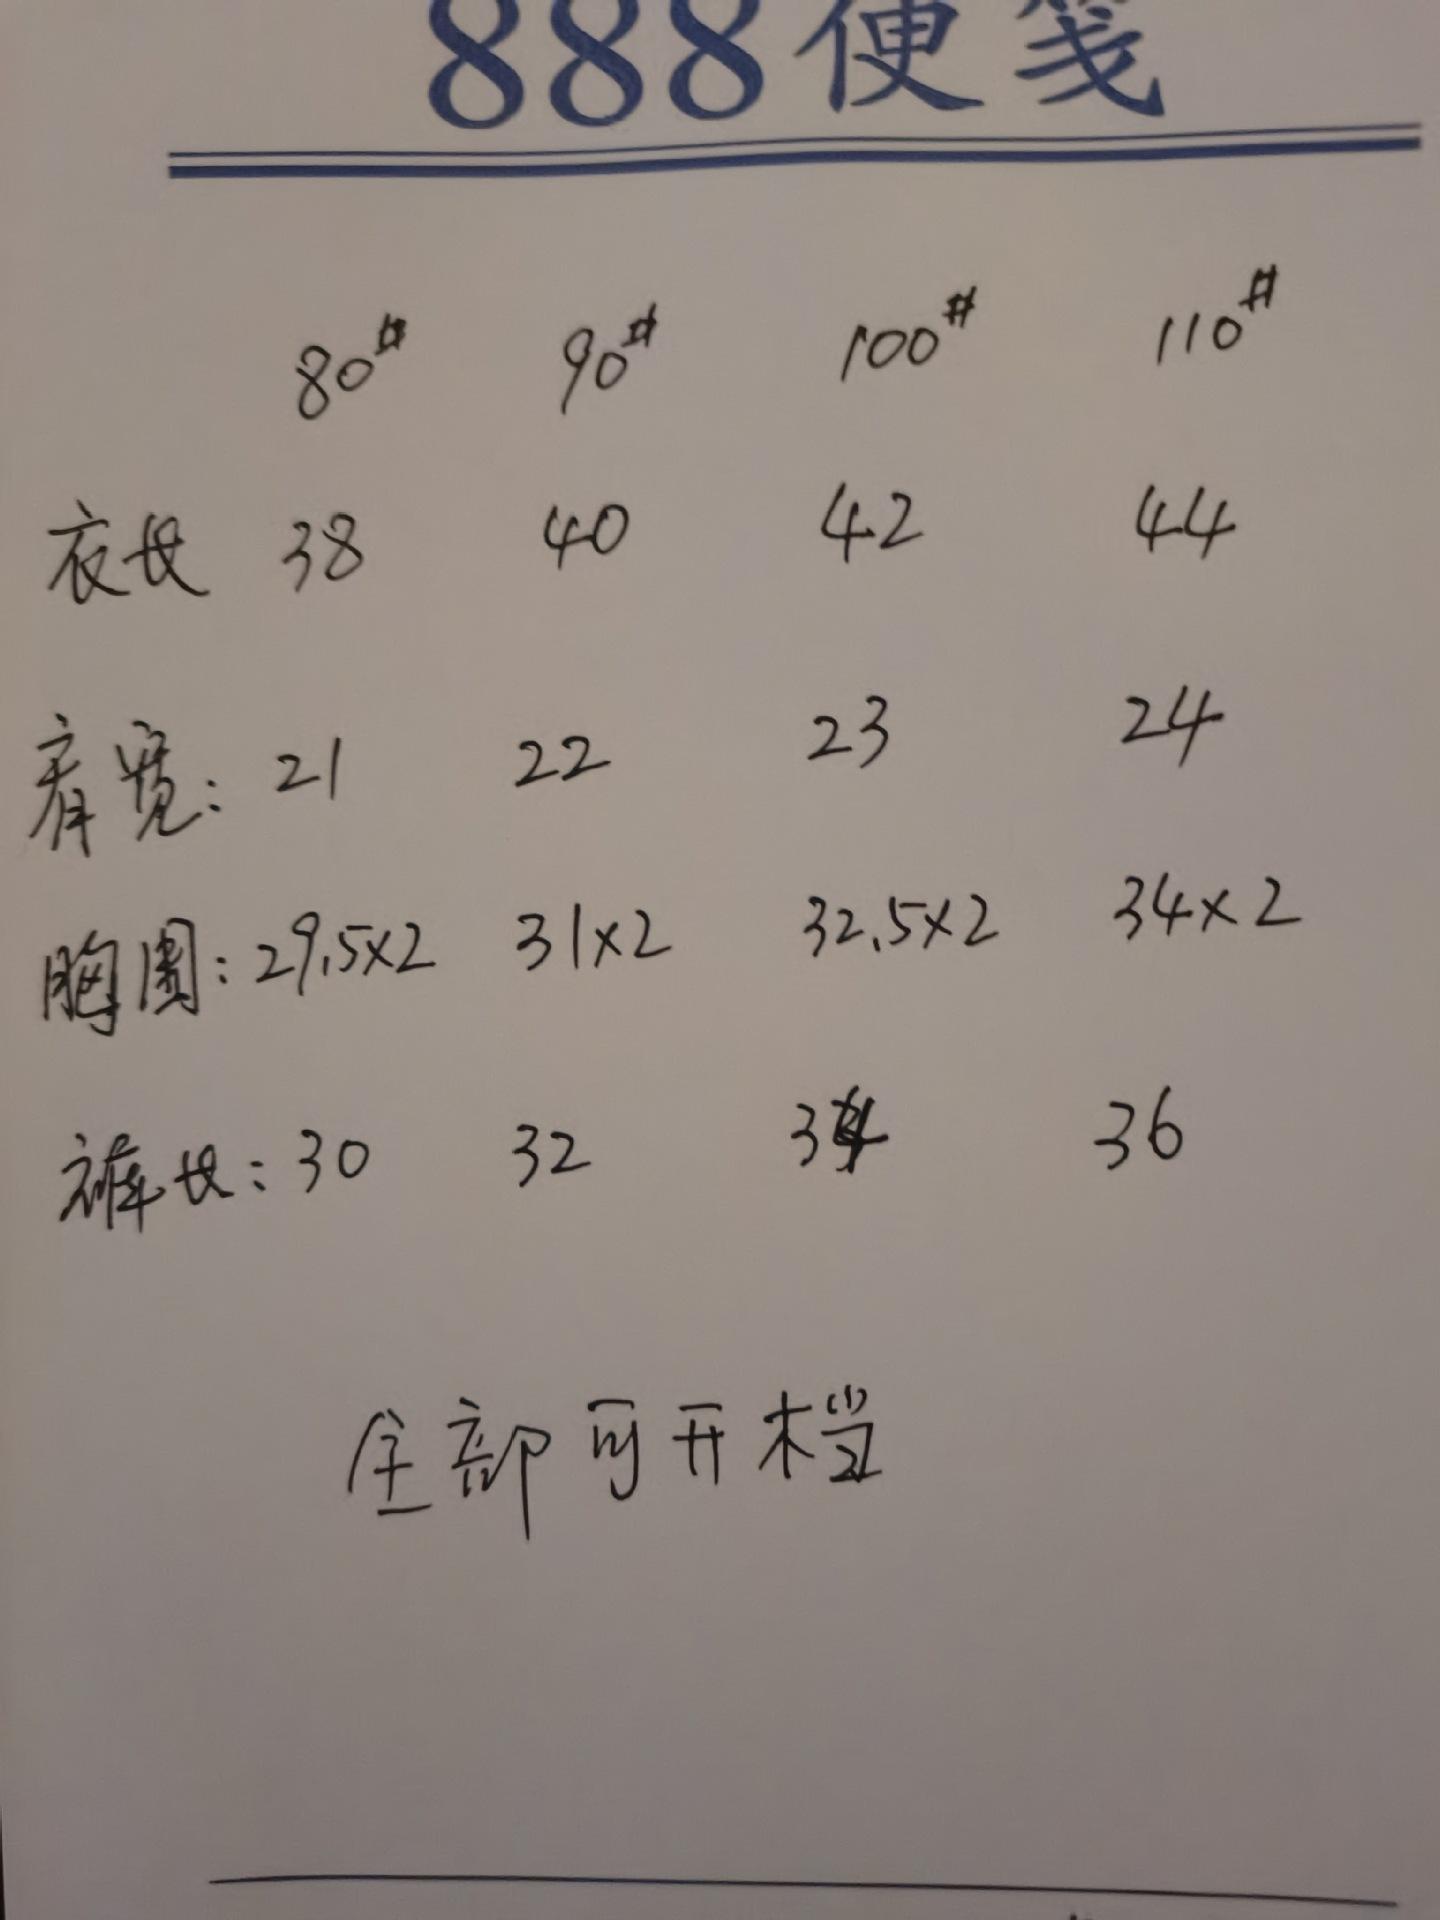 888便笺
80# 90# 100# 110#
衣长 38 40 42 44
肩宽: 21 22 23 24
胸围: 29.5x2 31x2 32.5x2 34x2
裤长: 30 32 34 36
全部可开档